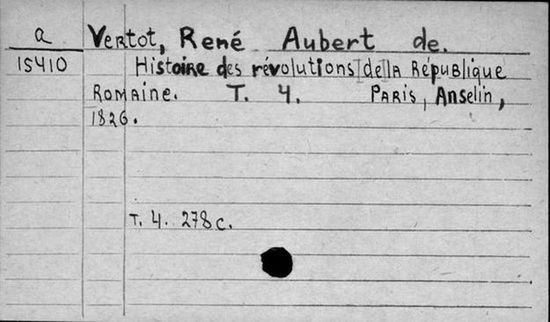 a Vertot, René Aubert de.
15410 Histoire des révolutions de la République
Romaine. T. 4. Paris, Anselin,
1826.
T. 4. 278 c.